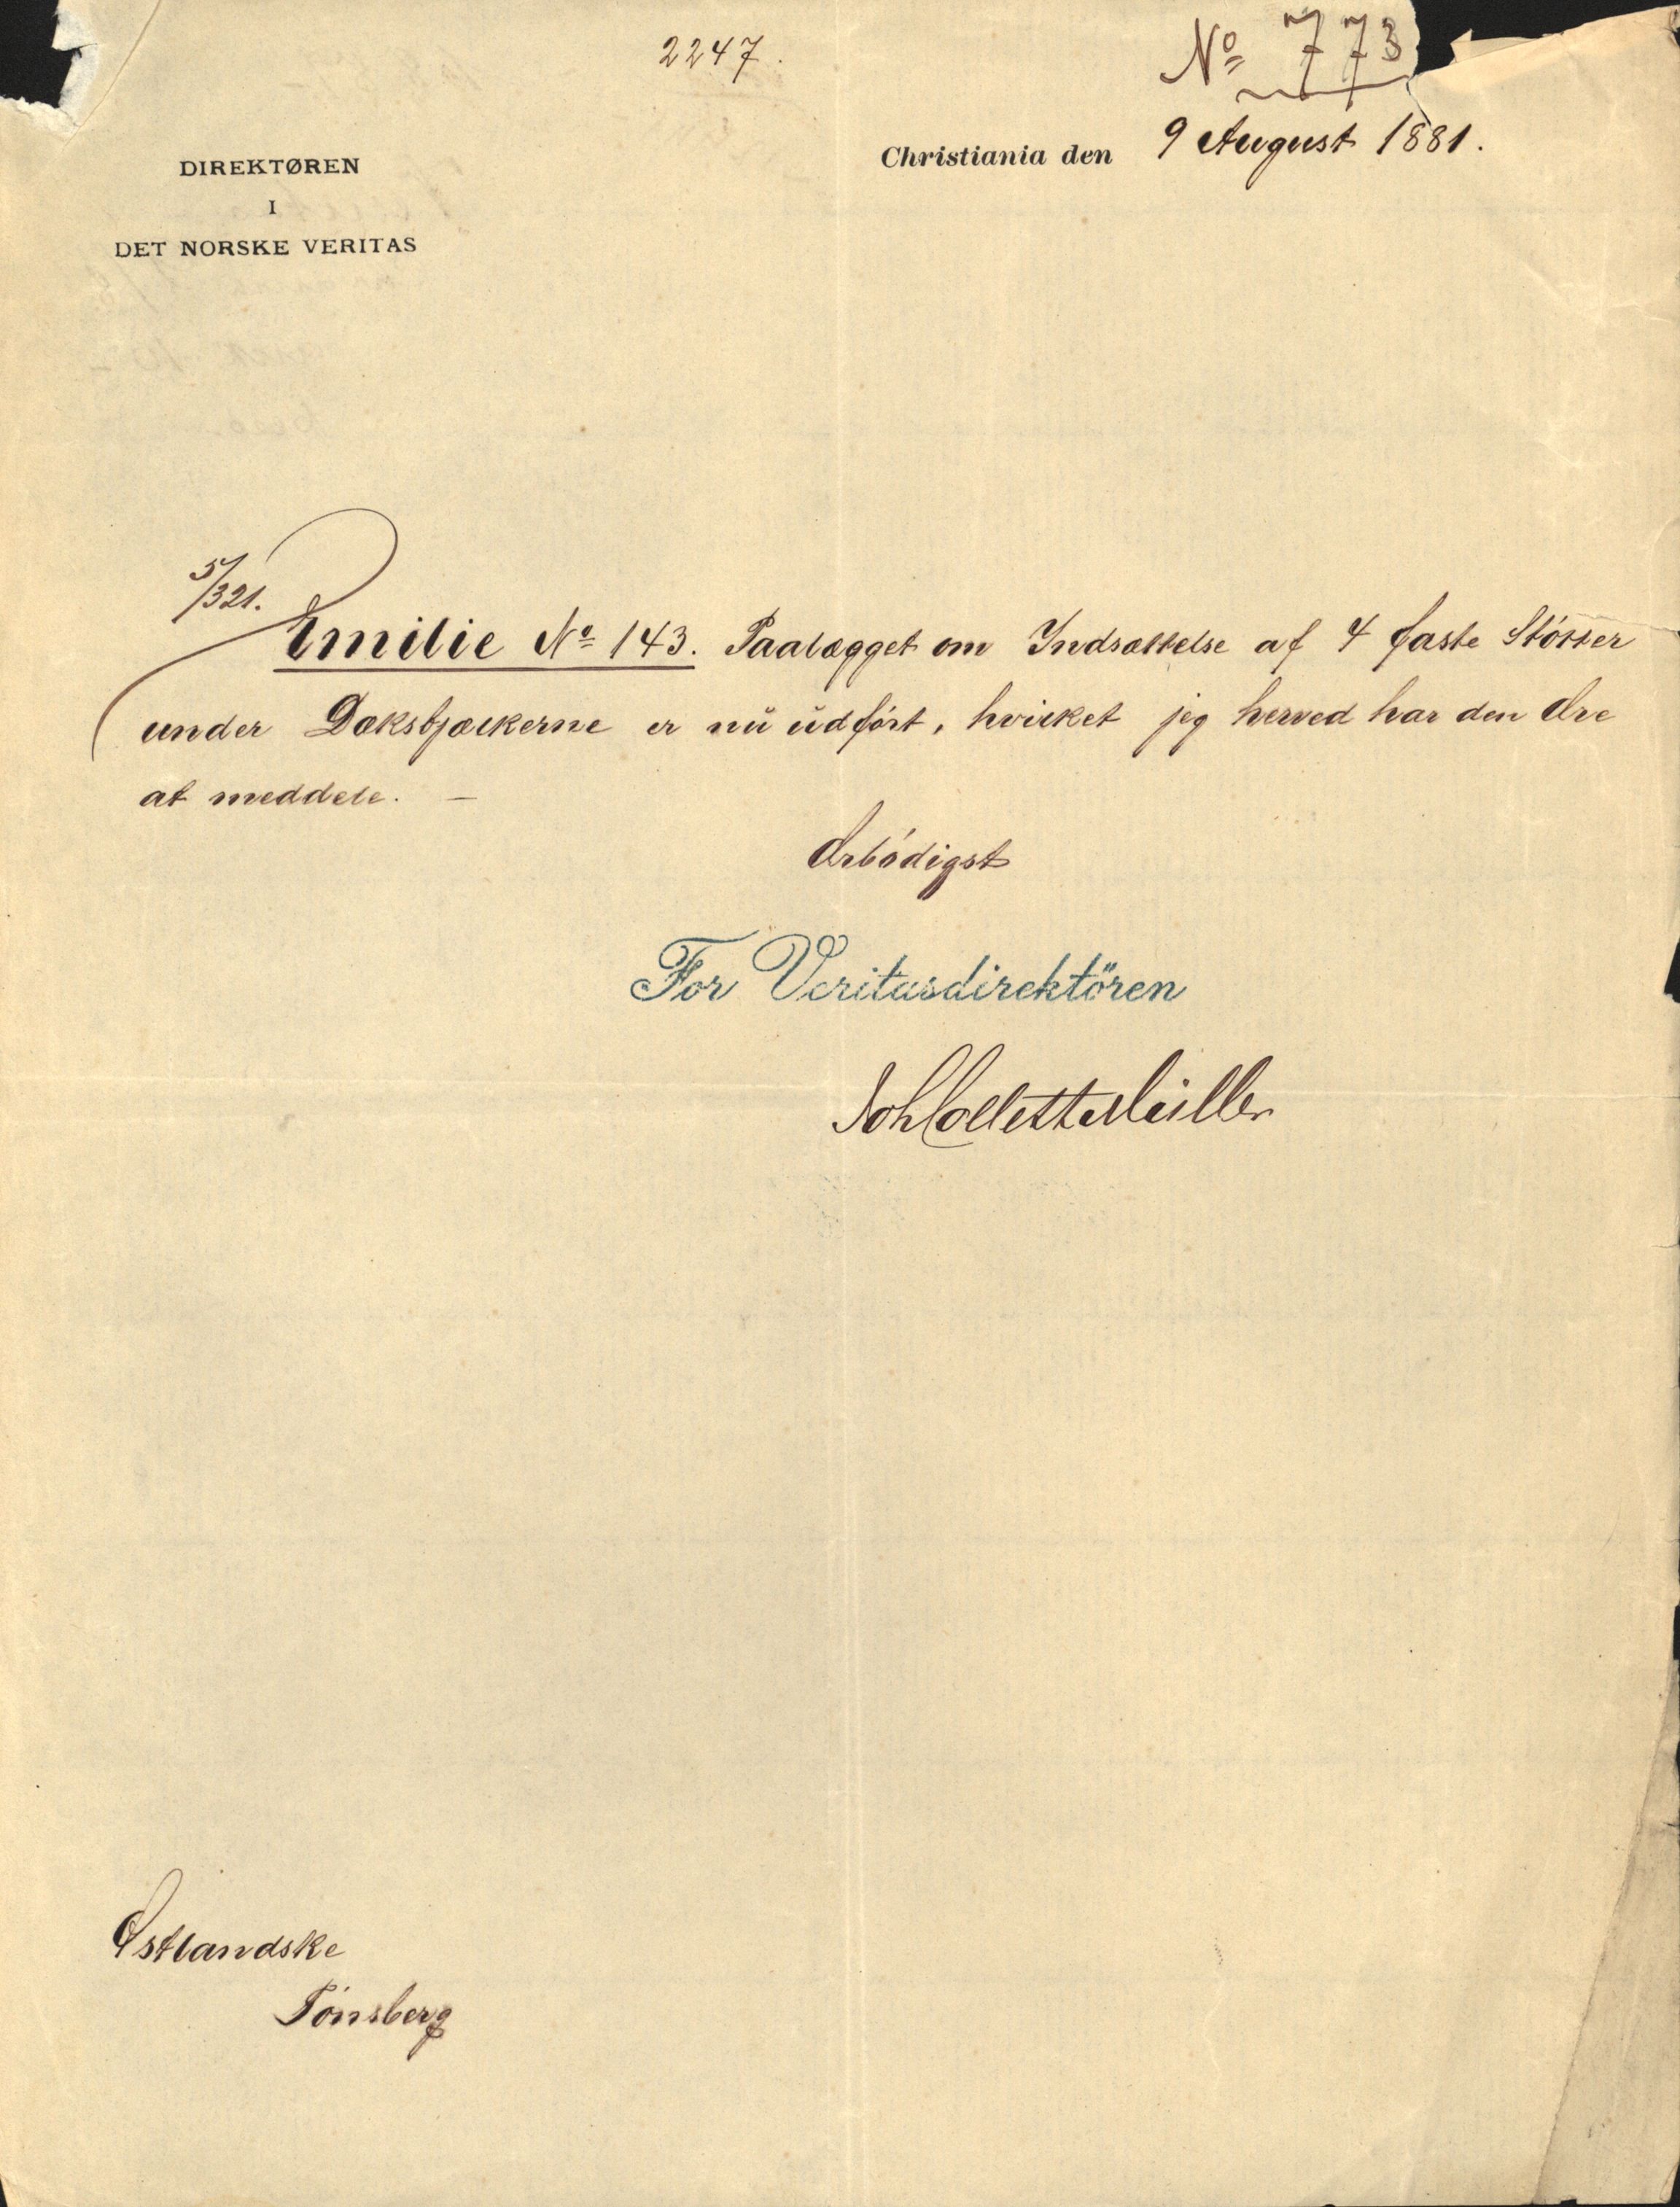 2247.
Nº 773
DIREKTØREN
I
DET NORSKE VERITAS
Christiania den 9 August 1881.
5/321.
Emilie Nº 143. Paalægget om Indsættelse af 4 faste Støtter
under Dæksbjælkerne er nu udført, hvilket jeg herved har den Ære
at meddele. —
Ærbødigst
For Veritasdirektören
Joh Collett Müller
Østlandske
Tønsberg